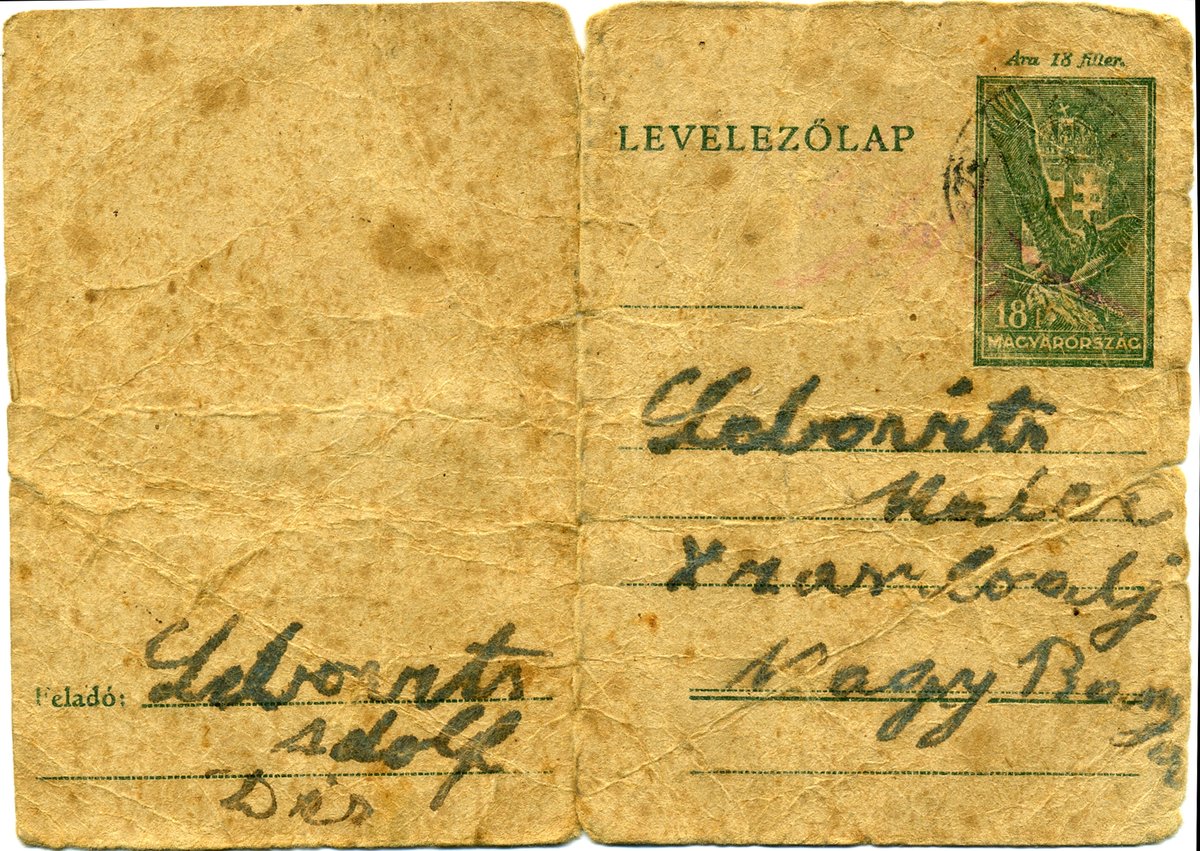 Ára 18 fillér.
LEVELEZŐLAP
18 f
MAGYARORSZÁG
Lebovits
Nagy Banya
Feladó: Lebovits
Adolf
Dés